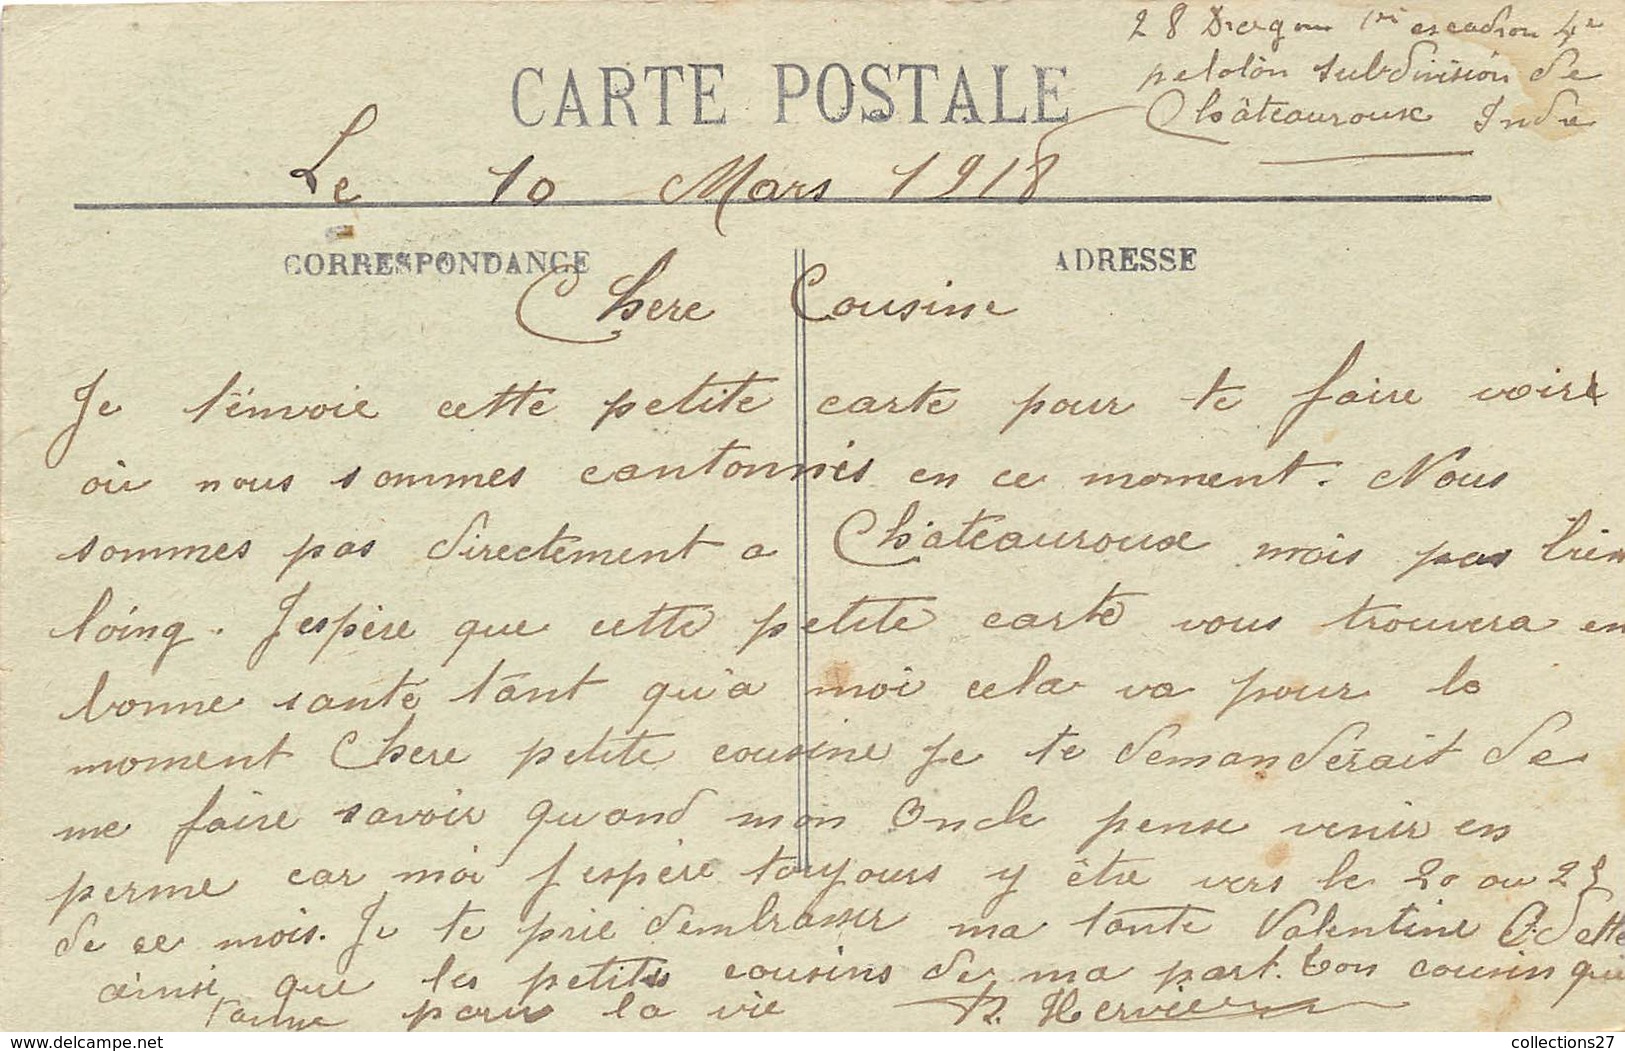 28 Dragon 1er escadron 4e
peloton subdivision de
Châteauroux Indre
CARTE POSTALE
Le 10 Mars 1918
CORRESPONDANCE
ADRESSE
Chere Cousine
Je t'envoie cette petite carte pour te faire voir
où nous sommes cantonnés en ce moment. Nous
sommes pas directement a Châteauroux mais pas bien
loing. J'espère que cette petite carte vous trouvera en
bonne santé tant qu'a moi cela va pour le
moment Chere petite cousine je te demanderait de
me faire savoir quand mon Oncle pense venir en
perme car moi j'espère toujours y être vers le 20 ou 25
de ce mois. Je te prie d'embrasser ma tante Valentine Odette
ainsi que les petits cousins de ma part. ton cousin qui
t'aime pour la vie R. Hervieu
collections27